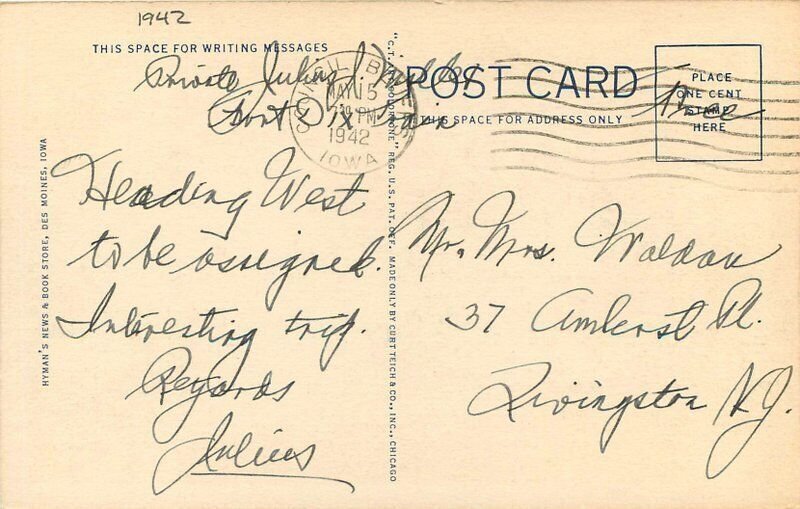 1942
THIS SPACE FOR WRITING MESSAGES
Private Julius J.
Fort Dix Train
Heading West
to be assigned.
Interesting trip.
Regards
Julius
HYMAN'S NEWS & BOOK STORE, DES MOINES, IOWA
"C.T. ART-COLORTONE" REG. U.S. PAT. OFF. MADE ONLY BY CURT TEICH & CO., INC., CHICAGO
COUNCIL BLUFFS
MAY 15
7 30 PM
1942
IOWA
POST CARD
THIS SPACE FOR ADDRESS ONLY
PLACE
ONE CENT
STAMP
HERE
Free
Mr. Mrs. Waldau
37 Amherst Pl.
Livingston N.J.